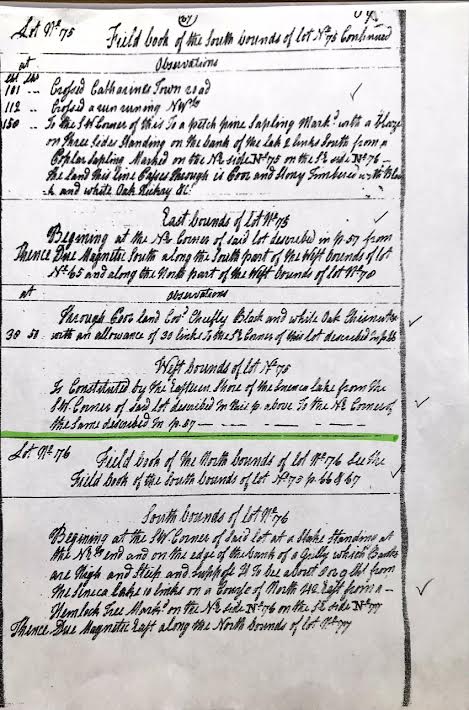 (67)
Lot No. 75 Field book of the South bounds of lot No. 75 Continued
at Observations
Chs Lks
101 .. Crossed Catharines Town road
112 .. Crossed a run running NW
150 .. To the SW Corner of this To a pitch pine Sapling Markd with a blaze
on Three Sides Standing on the bank of the Lake links South from a
Poplar Sapling Marked on the No. side No. 75 on the So. side No. 76 —
The land this Line Passes Through is Poor and Stony Timbered with Blac
k and white Oak Hickory &c
East bounds of lot No. 75
Begining at the NE Corner of said lot described in p. 57 from
Thence Due Magnetic South along the South part of the West bounds of lot
No. 65 and along the North part of the West bounds of lot No. 70
at Observations
Through Poor land Covd. Chiefly Black and white Oak Chesnut &c
38 50 with an allowance of 30 links to the SE Corner of this lot described in p. 66
West bounds of lot No. 75
Is Constituted by the Eastern Shore of the Seneca Lake from the
SW Corner of said lot described in this p. above To the NW Corner of
the Same described in p. 57 — — — — —
Lot No. 76 Field book of the North bounds of lot No. 76 See the
Field book of the South bounds of lot No. 75 p. 66 & 67
South bounds of lot No. 76
Begining at the SW Corner of Said lot at a Stake Standing at
the end and on the edge of the bank of a Gully which Banks
are High and Steep and suppose it To be about 8 or 9 Chs from
the Seneca Lake 10 links on a Course of North East from a —
Hemlock Tree Markd on the No. side No. 76 on the So. side No. 77
Thence Due Magnetic East along the North bounds of lot No. 77